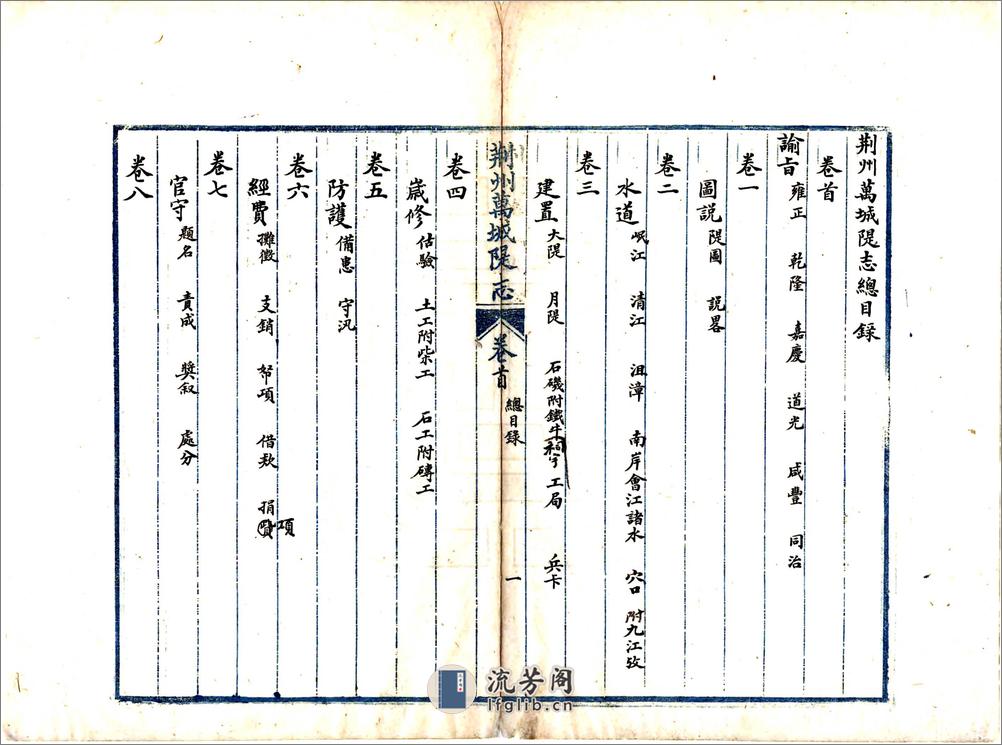 荆州萬城隄志總目錄
卷首
諭旨 雍正 乾隆 嘉慶 道光 咸豐 同治
卷一
圖說 隄圖 說畧
卷二
水道 岷江 清江 沮漳 南岸會江諸水 穴口 附九江攷
卷三
建置 大隄 月隄 石磯附鐵牛 祠宇 工局 兵卡
荆州萬城隄志 卷首 總目錄 一
卷四
歲修 估驗 土工附柴工 石工附磚工
卷五
防護 備患 守汛
卷六
經費 攤徵 支銷 帑項 借欵 捐費項
卷七
官守 題名 責成 獎叙 處分
卷八
流芳阁
lfglib.cn